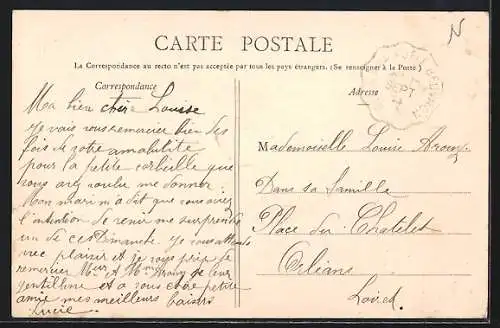 CARTE POSTALE
La Correspondance au recto n'est pas acceptée par tous les pays étrangers. (Se renseigner à la Poste)
Correspondance
Ma bien chère Louise
Je vais vous remercier bien des
fois de votre amabilité
pour la petite corbeille que
vous avez voulu me donner
Mon mari m'a dit que vous aviez
l'intention de venir me surprendre
un de ces Dimanche. Je vous attends
avec plaisir et je vous prie de
remercier Mr et Mme de leur
gentillesse et à vous chère petite
amie mes meilleurs baisers
Lucie
Adresse
Mademoiselle Louise
Dans sa famille
Place du Chatelet
Orléans
Loiret
SEPT